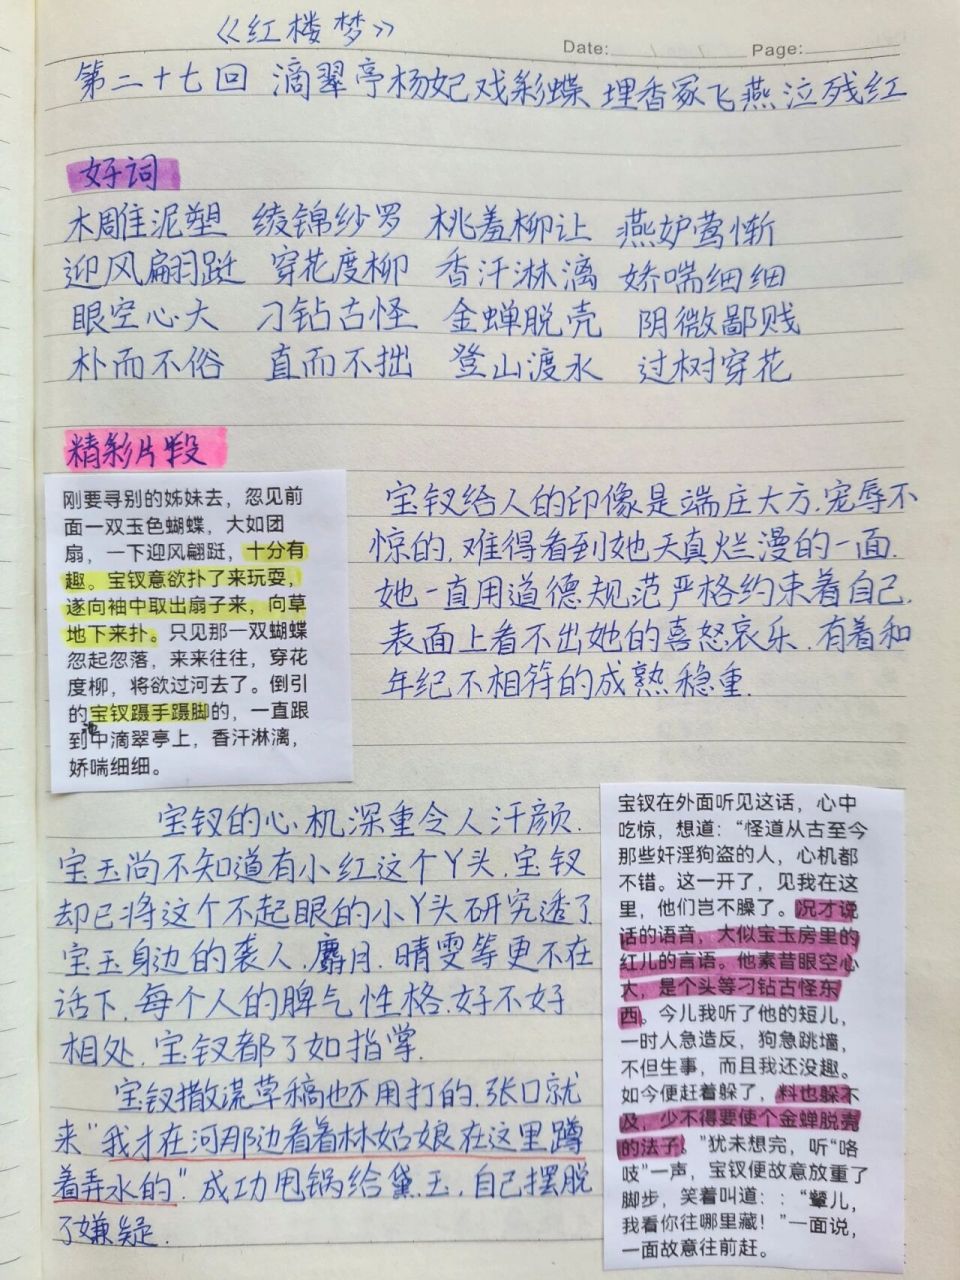 《红楼梦》
Date: / / Page:
第二十七回 滴翠亭杨妃戏彩蝶 埋香冢飞燕泣残红
好词
木雕泥塑 绫锦纱罗 桃羞柳让 燕妒莺惭
迎风翩翃跹 穿花度柳 香汗淋漓 娇喘细细
眼空心大 刁钻古怪 金蝉脱壳 阴微鄙贱
朴而不俗 直而不拙 登山渡水 过树穿花
精彩片段
刚要寻别的姊妹去，忽见前
面一双玉色蝴蝶，大如团
扇，一下迎风翩跹，十分有
趣。宝钗意欲扑了来玩耍，
遂向袖中取出扇子来，向草
地下来扑。只见那一双蝴蝶
忽起忽落，来来往往，穿花
度柳，将欲过河去了。倒引
的宝钗蹑手蹑脚的，一直跟
到池中滴翠亭上，香汗淋漓，
娇喘细细。
宝钗给人的印像是端庄大方.宠辱不
惊的.难得看到她天真烂漫的一面.
她一直用道德规范严格约束着自己.
表面上看不出她的喜怒哀乐.有着和
年纪不相符的成熟稳重.
宝钗的心机深重令人汗颜.
宝玉尚不知道有小红这个丫头.宝钗
却已将这个不起眼的小丫头研究透了
宝玉身边的袭人.麝月.晴雯等更不在
话下.每个人的脾气性格.好不好
相处.宝钗都了如指掌.
宝钗撒谎草稿也不用打的.张口就
来"我才在河那边看着林姑娘在这里蹲
着弄水的".成功甩锅给黛玉.自己摆脱
了嫌疑.
宝钗在外面听见这话，心中
吃惊，想道：“怪道从古至今
那些奸淫狗盗的人，心机都
不错。这一开了，见我在这
里，他们岂不臊了。况才说
话的语音，大似宝玉房里的
红儿的言语。他素昔眼空心
大，是个头等刁钻古怪东
西。今儿我听了他的短儿，
一时人急造反，狗急跳墙，
不但生事，而且我还没趣。
如今便赶着躲了，料也躲不
及，少不得要使个金蝉脱壳
的法子。”犹未想完，听“咯
吱”一声，宝钗便故意放重了
脚步，笑着叫道：：“颦儿，
我看你往哪里藏！”一面说，
一面故意往前赶。